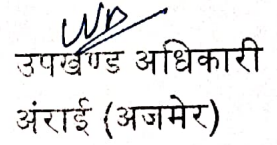 उपखण्ड अधिकारी
अंराई (अजमेर)